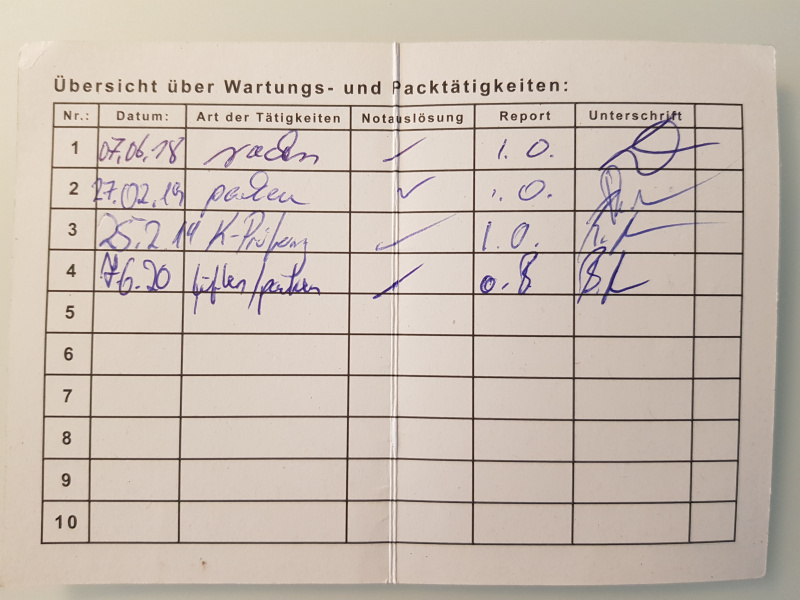 Übersicht über Wartungs- und Packtätigkeiten:
Nr.: Datum: Art der Tätigkeiten Notauslösung Report Unterschrift
1 07.06.18 ✓ 1. O.
2 27.02.19 packen ✓ 1. O.
3 25.2.19 K-Prüfung ✓ 1. O.
4 7.6.20 lüften/packen ✓ o. B
5
6
7
8
9
10